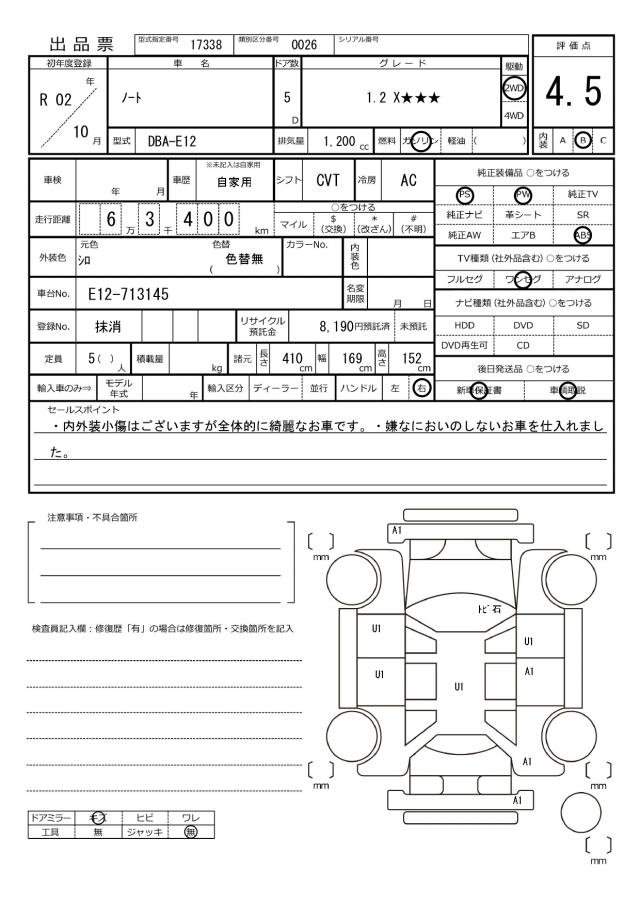 出品票 型式指定番号 17338 類別区分番号 0026 シリアル番号
評価点
4.5
内装 A B C
初年度登録 車名 ドア数 グレード 駆動
R 02 年 10 月
ノート 5 D 1.2 X★★★ 2WD 4WD
型式 DBA-E12 排気量 1.200 cc 燃料 ガソリン 軽油 ( )
車検 年 月 車歴 ※未記入は自家用 自家用 シフト CVT 冷房 AC
走行距離 6 3 万 千 4 0 0 km
○をつける
マイル $(交換) *(改ざん) #(不明)
外装色 元色 シロ 色替 ( 色替無 ) カラーNo. 内装色
車台No. E12-713145 名変期限 月 日
登録No. 抹消 リサイクル預託金 8,190円預託済 未預託
定員 5( )人 積載量 kg 諸元 長さ 410 cm 幅 169 cm 高さ 152 cm
輸入車のみ⇒ モデル年式 年 輸入区分 ディーラー 並行 ハンドル 左 右
純正装備品 ○をつける
PS PW 純正TV
純正ナビ 革シート SR
純正AW エアB ABS
TV種類(社外品含む) ○をつける
フルセグ ワンセグ アナログ
ナビ種類(社外品含む) ○をつける
HDD DVD SD
DVD再生可 CD
後日発送品 ○をつける
新車保証書 車輌取説
セールスポイント
・内外装小傷はございますが全体的に綺麗なお車です。・嫌なにおいのしないお車を仕入れまし
た。
注意事項・不具合箇所
検査員記入欄:修復歴「有」の場合は修復箇所・交換箇所を記入
ドアミラー キズ ヒビ ワレ
工具 無 ジャッキ 無
A1
mm
mm
トビ石
U1
U1
U1
A1
U1
A1
mm
mm
A1
mm